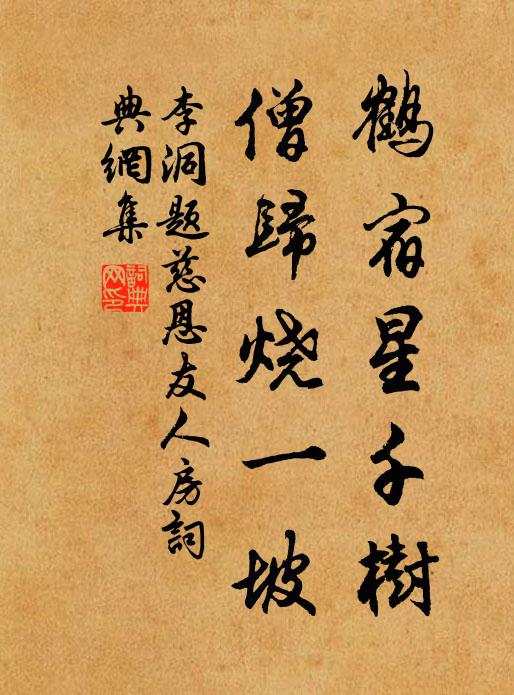 鶴宿星千樹
僧歸燒一坡
李洞題慈恩友人房詞
典網集
詞典网印